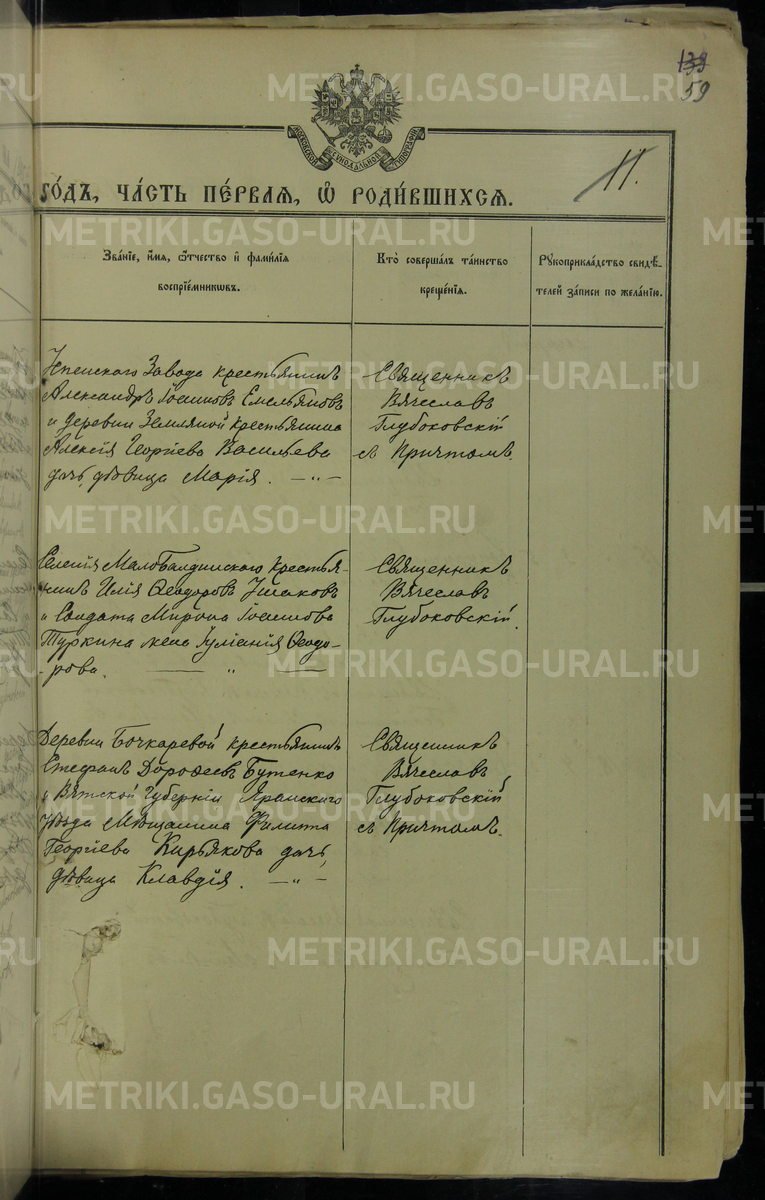 139
59
МОСКОВСКОЙ СѴНОДАЛЬНОЙ ТИПОГРАФІИ
11.
ГО́ДЪ, ЧА́СТЬ ПЕ́РВАЯ, Ѡ҆ РОДИ́ВШИХСЯ.
Зва́нїе, и҆́мѧ, ѻ҆́тчество и҆ фами́лїѧ
воспрїе́мникѡвъ.
Кто̀ соверша́лъ та́инство
креще́нїѧ.
Рꙋкоприкла́дство свидѣ́-
телей за́писи по жела́нїю.
завода крестьянинъ
Александръ Іоанновъ Емельяновъ
и деревни Земляной крестьянина
Алексія Георгіева Васильева
дочь, дѣвица Марія. —„—
Священникъ
Вячеславъ
Глубоковскій
съ Причтомъ.
Селенія крестья-
нинъ Илія Ѳеодоровъ Ушаковъ
и Солдата Мирона Іоаннова
Туркина жена Іуліанія Ѳеодо-
рова. — „ —
Священникъ
Вячеславъ
Глубоковскій.
Деревни Бочкаревой крестьянинъ
Стефанъ Дороѳеевъ Бутенко
и Вятской Губерніи Яранскаго
уѣзда Мѣщанина Филиппа
Георгіева Кирьякова дочь,
дѣвица Клавдія. —„—
Священникъ
Вячеславъ
Глубоковскій
съ Причтомъ.
METRIKI.GASO-URAL.RU